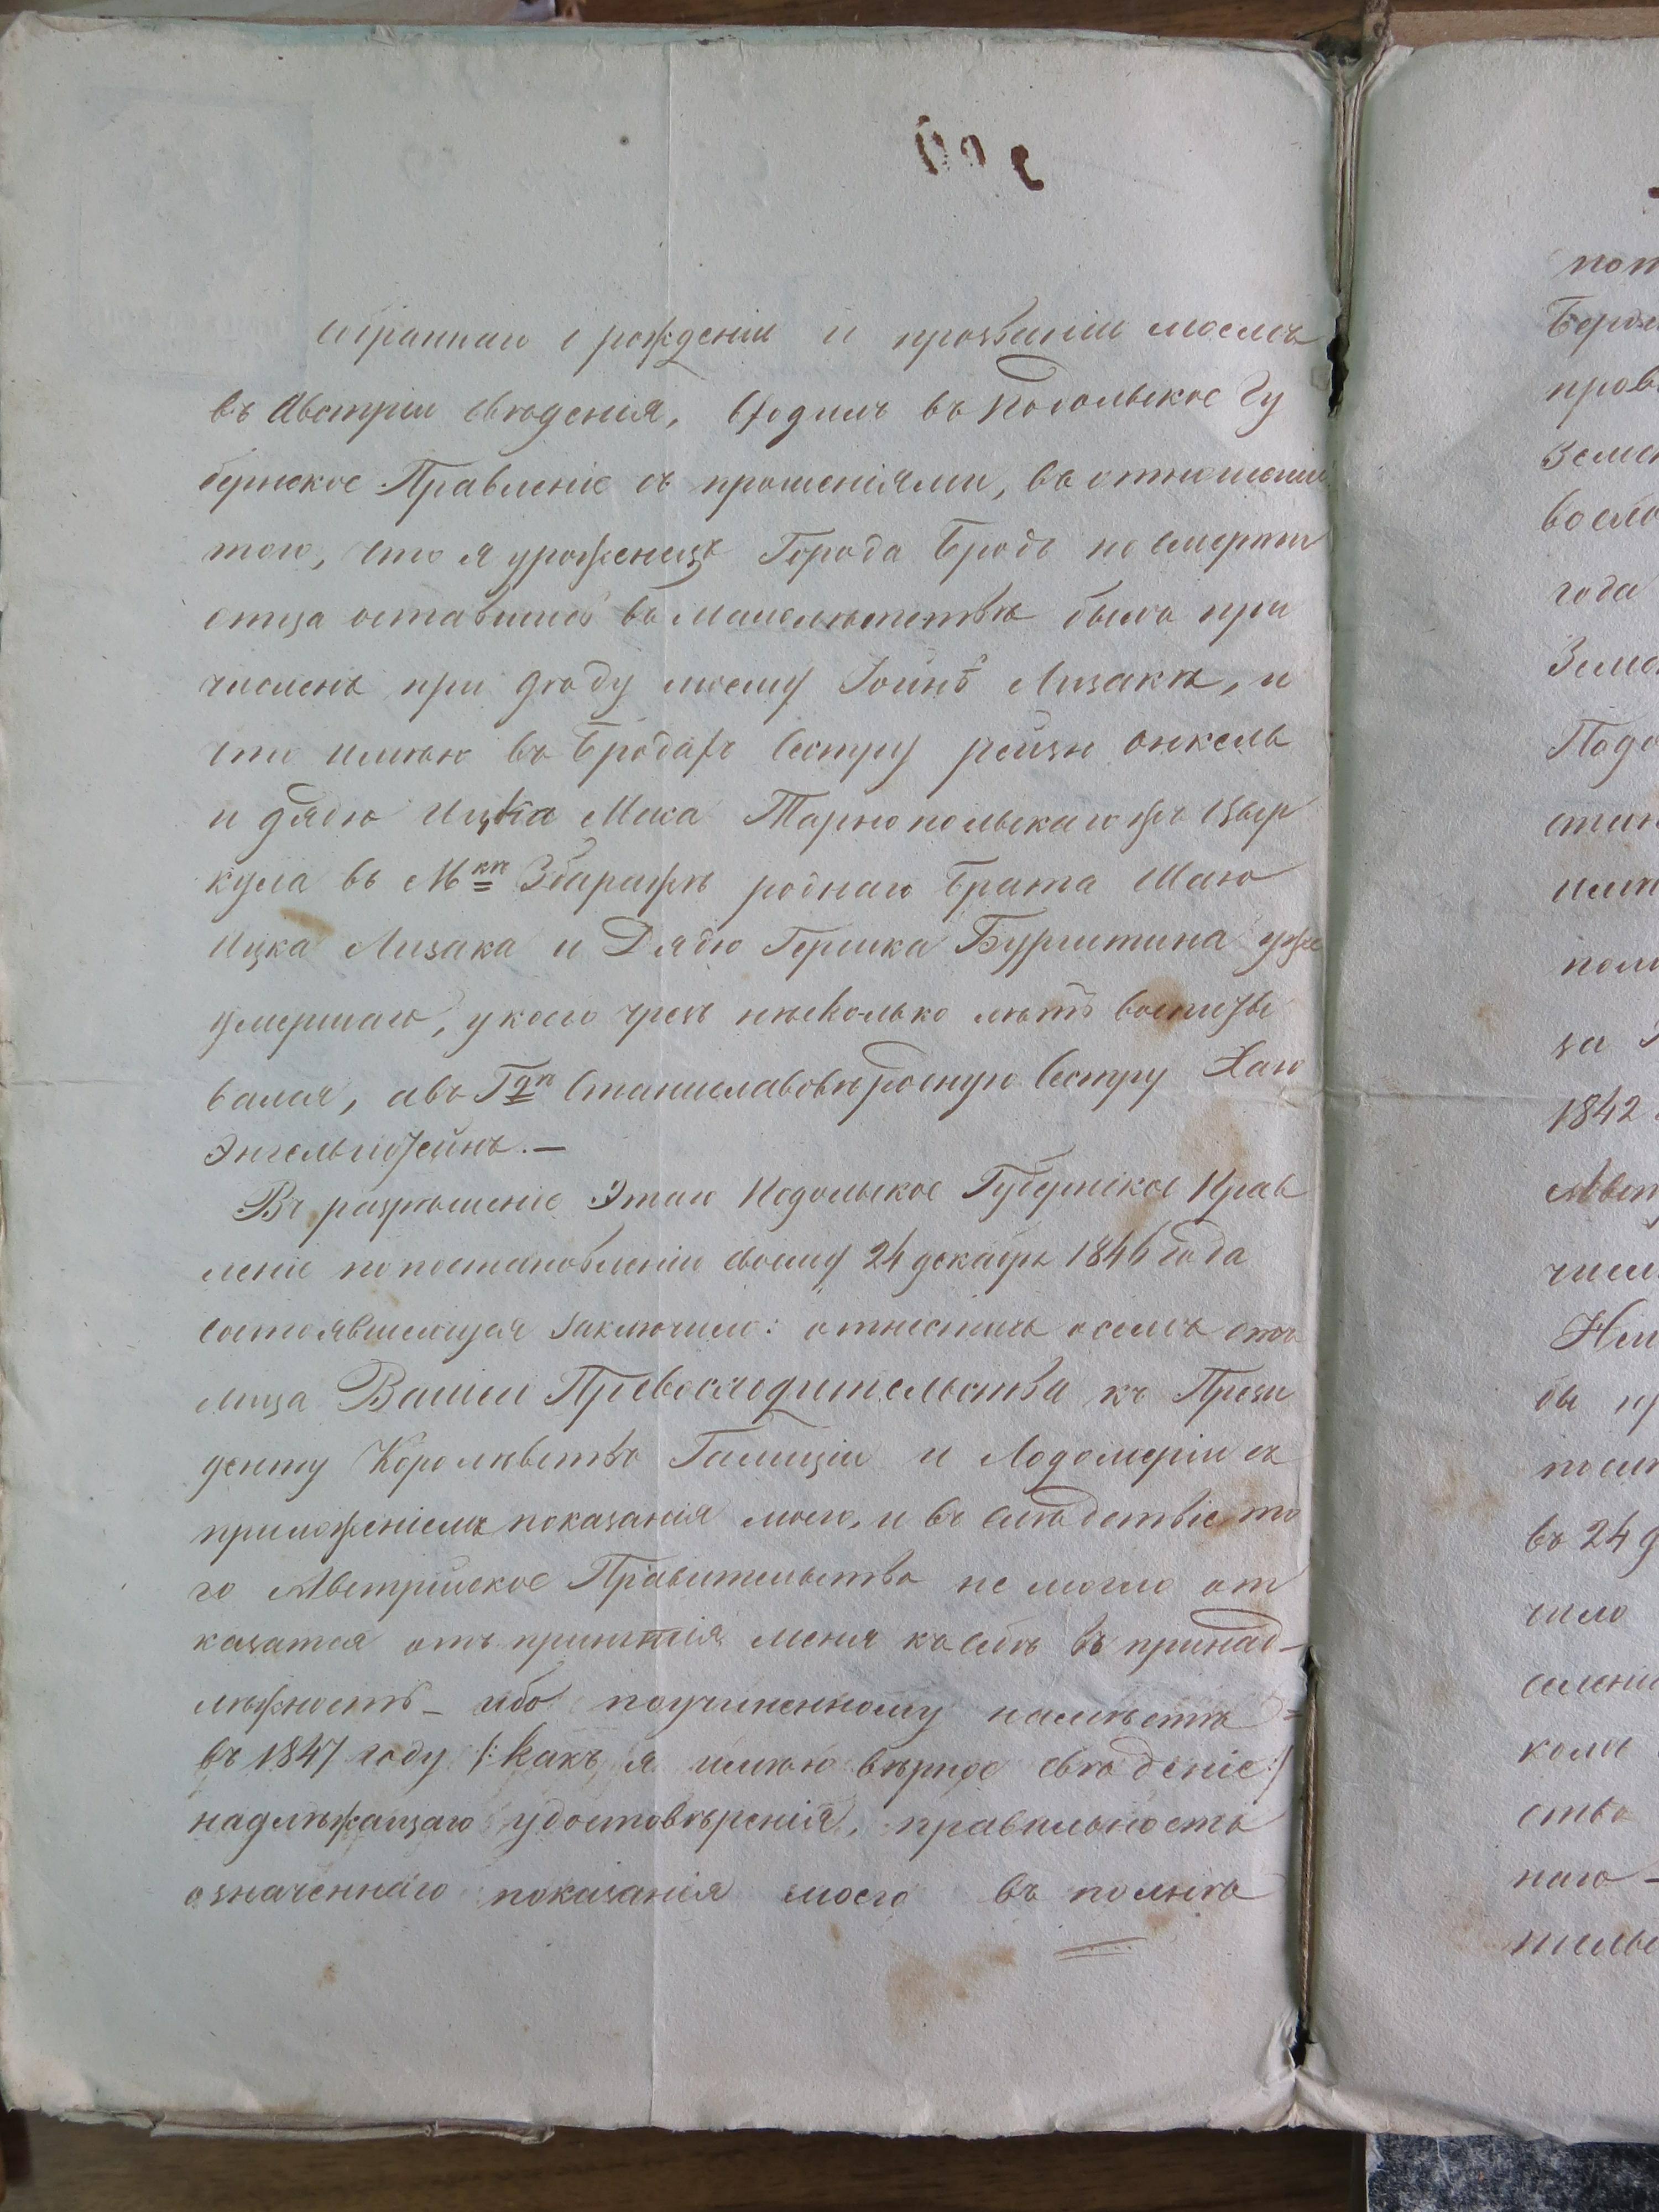 о рожденіи и прозваніи моемъ
въ Австріи свѣденія, входилъ въ Подольское Гу
бернское Правленіе съ прошеніями, въ отношеніи
того, что я уроженецъ Города Бродъ по смерти
отца оставшись въ малолѣтствѣ былъ при
численъ при дѣду моему Лизакѣ, и
что имѣю въ Бродахъ Сестру рейзю онкель
и дядю Ицка Мака Тарнопольскаго жъ Цыр
кула въ Мкѣ Збаражѣ роднаго брата Шаю
Ицка Лизака и Дядю Гершка Бурштина уже
умершаго, у коего чрезъ нѣсколько лѣтъ воспиты
вался, а въ Гдѣ Станиславовѣ родную Сестру Хаю
Энгельштейнъ.—
Въ разрѣшеніе Этаго Подольское Губернское Прав
леніе по постановленію своему 24 декабря 1846 года
состоявшемуся заключило: отнестись о семъ отъ
лица Вашего Превосходительства къ Прези
денту Королевствъ Галиціи и Лодомеріи съ
приложеніемъ показанія моего, и въ слѣдствіе то
го Австрійское Правительство не могло от
казатся отъ принятія меня къ себѣ въ принад-
лѣжность- ибо поучиненному намѣстѣ =
въ 1847 году /: какъ я имѣю вѣрное свѣденіе :/
надлѣжащаго удостовѣренія, правильность
означеннаго показанія моего въ полнѣ
пот
пров
Земс
года
Земс
Подо
за
1842
числ
бы
въ 24 д
число
селені
ство
наго -